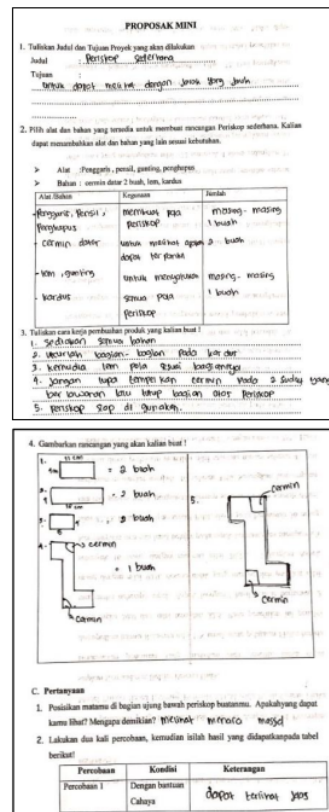 PROPOSAK MINI
1. Tuliskan Judul dan Tujuan Proyek yang akan dilakukan
Judul : Periskop sederhana
Tujuan :
untuk dapat melihat dengan jarak yang jauh
2. Pilih alat dan bahan yang tersedia untuk membuat rancangan Periskop sederhana. Kalian
dapat menambahkan alat dan bahan yang lain sesuai kebutuhan.
Alat : Penggaris, pensil, gunting, penghapus
Bahan : cermin datar 2 buah, lem, kardus
Alat /Bahan Kegunaan Jumlah
- Penggaris, Pensil, membuat pola masing - masing
Penghapus periskop 1 buah
- cermin datar untuk melihat 2 buah
dapat
- lem, gunting untuk masing - masing
1 buah
- kardus semua pola
Periskop
3. Tuliskan cara kerja pembuatan produk yang kalian buat !
1. Sediakan semua bahan
2. bagian - bagian pada kardus
3. kemudian lem pola sesuai
4. Jangan lupa tempelkan cermin Pada 2 sudut yang
berlawanan lalu tutup bagian atas Periskop
5. Periskop siap di gunakan.
4. Gambarkan rancangan yang akan kalian buat !
1. = 2 buah
2. = 2 buah
3. = 2 buah
4. cermin
= 1 buah
cermin
5. cermin
cermin
C. Pertanyaan
1. Posisikan matamu di bagian ujung bawah periskop buatanmu. Apakahyang dapat
kamu lihat? Mengapa demikian? Melihat menara masjid
2. Lakukan dua kali percobaan, kemudian isilah hasil yang didapatkanpada tabel
berikut!
Percobaan Kondisi Keterangan
Percobaan 1 Dengan bantuan dapat terlihat jelas
Cahaya